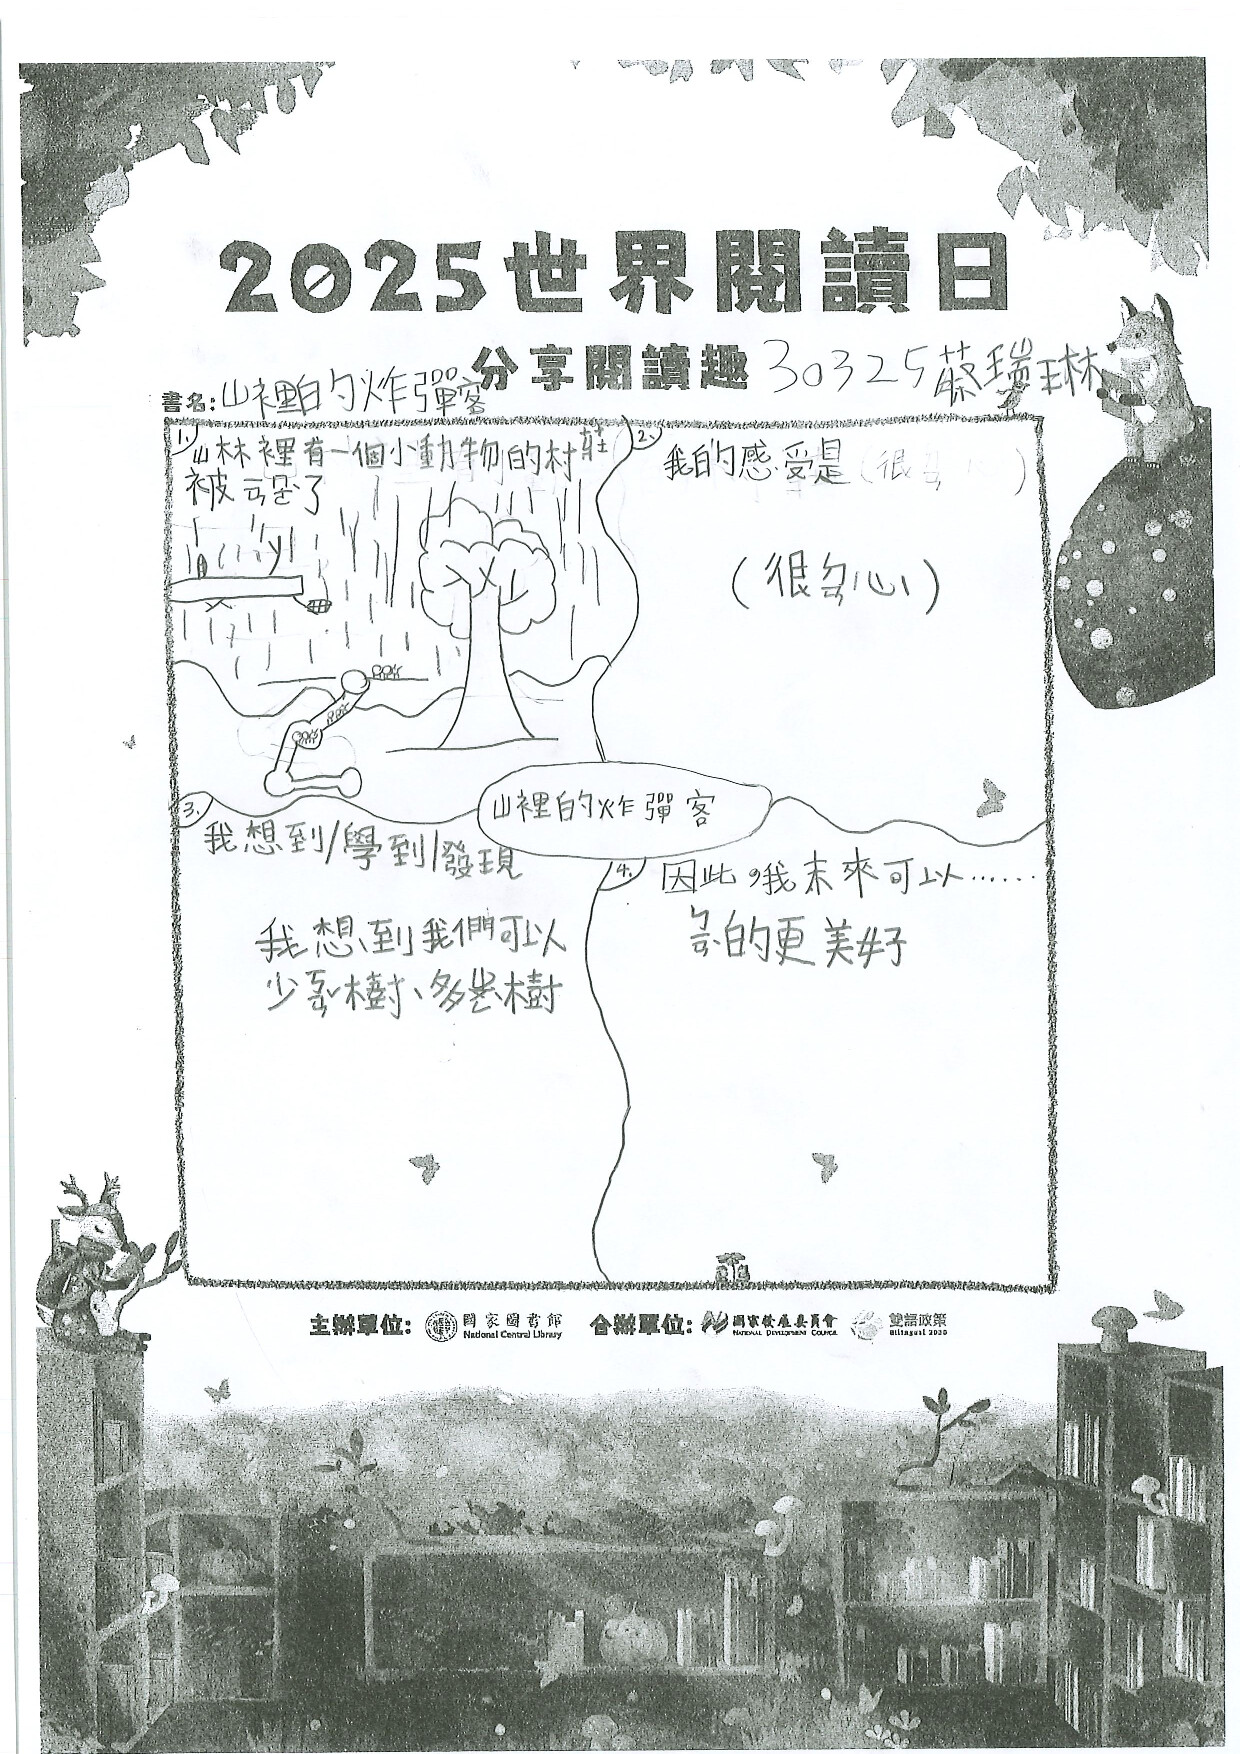 2025世界閱讀日
分享閱讀趣 30325蔡瑞琳
書名:山裡的炸彈客
1. 山林裡有一個小動物的村莊
被 了
2. 我的感受是(很 )
(很ㄉㄢ心)
山裡的炸彈客
3. 我想到/學到/發現
我想到我們可以
少ㄎㄢˇ樹、多ㄓㄨㄥˋ樹
4. 因此,我未來可以……
的更美好
主辦單位: 國家圖書館 合辦單位: 國家發展委員會 雙語政策
National Central Library NATIONAL DEVELOPMENT COUNCIL Bilingual 2030